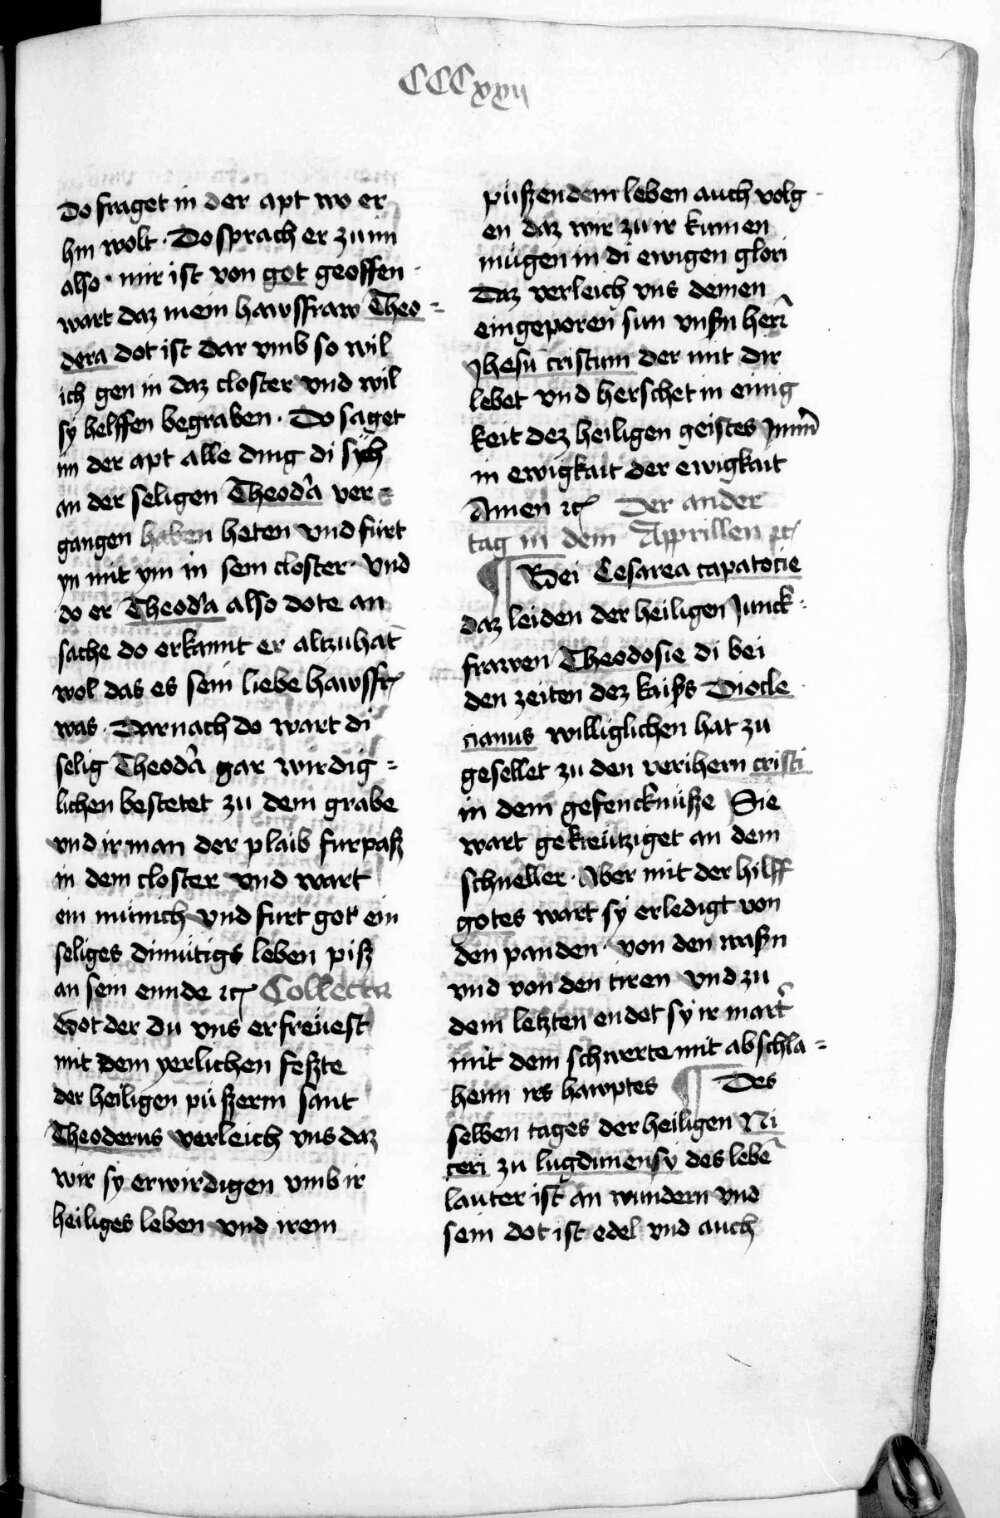 CCCxxii
Do fraget in der apt wo er
hin wolt · Do sprach er zu im
also · mir ist von got geoffen
wart daz mein hawsfraw Theo=
dera dot ist dar vmb so wil
ich gen in daz closter vnd wil
sy helffen begraben · Do saget
im der apt alle ding di sich
an der seligen Theod'a ver=
gangen haben heten vnd fürt
yn mit ym in sein closter · Vnd
do er Theod'a also dote an
sache do erkannt er altzuhāt
wol das es sein liebe hawsfr
was · Darnach do wart di
selig Theod'a gar wirdig=
lichen bestetet zu dem grabe
vnd ir man der plaib furpaß
in dem closter vnd wart
ein münich vnd furt got ein
seliges dimütigs leben piß
an sein ennde etc Collecta
Got der du vns erfreüest
mit dem yerlichen feßte
der heiligen püßerin sant
Theoderus verleich vns daz
wir sy erwirdigen vmb ir
heiliges leben vnd irem
püßendem leben auch volg
en daz wir zu ir kumen
mügen in di ewigen glori
Daz verleich vns deinen
eingeporen sun vnsn herī
Jhesū cristum der mit dir
lebet vnd herschet in einig
keit dez heiligen geistes Jmm̄
in ewigkait der ewigkait
Amen etc Der ander
tag in dem Apprillen etc
¶ Bei Cesarea capatocie
daz leiden der heiligen Junck=
frawen Theodosie di bei
den zeiten dez kaiß's Diocle
cianus williglichen hat zu
gesellet zu den verihern cristi
in dem gefencknüße Sie
wart gekreütziget an dem
schneller · Aber mit der hilff
gotes wart sy erledigt von
den panden von den wafn
vnd von den tiren vnd zu
dem letzten endet sy ir mart'
mit dem schwerte mit abschla=
henn irs hawptes ¶ Des
selben tages der heiligen Ni
ceri zu lugdunensy des lebē
lauter ist an wundern vnd
sein dot ist edel vnd auch